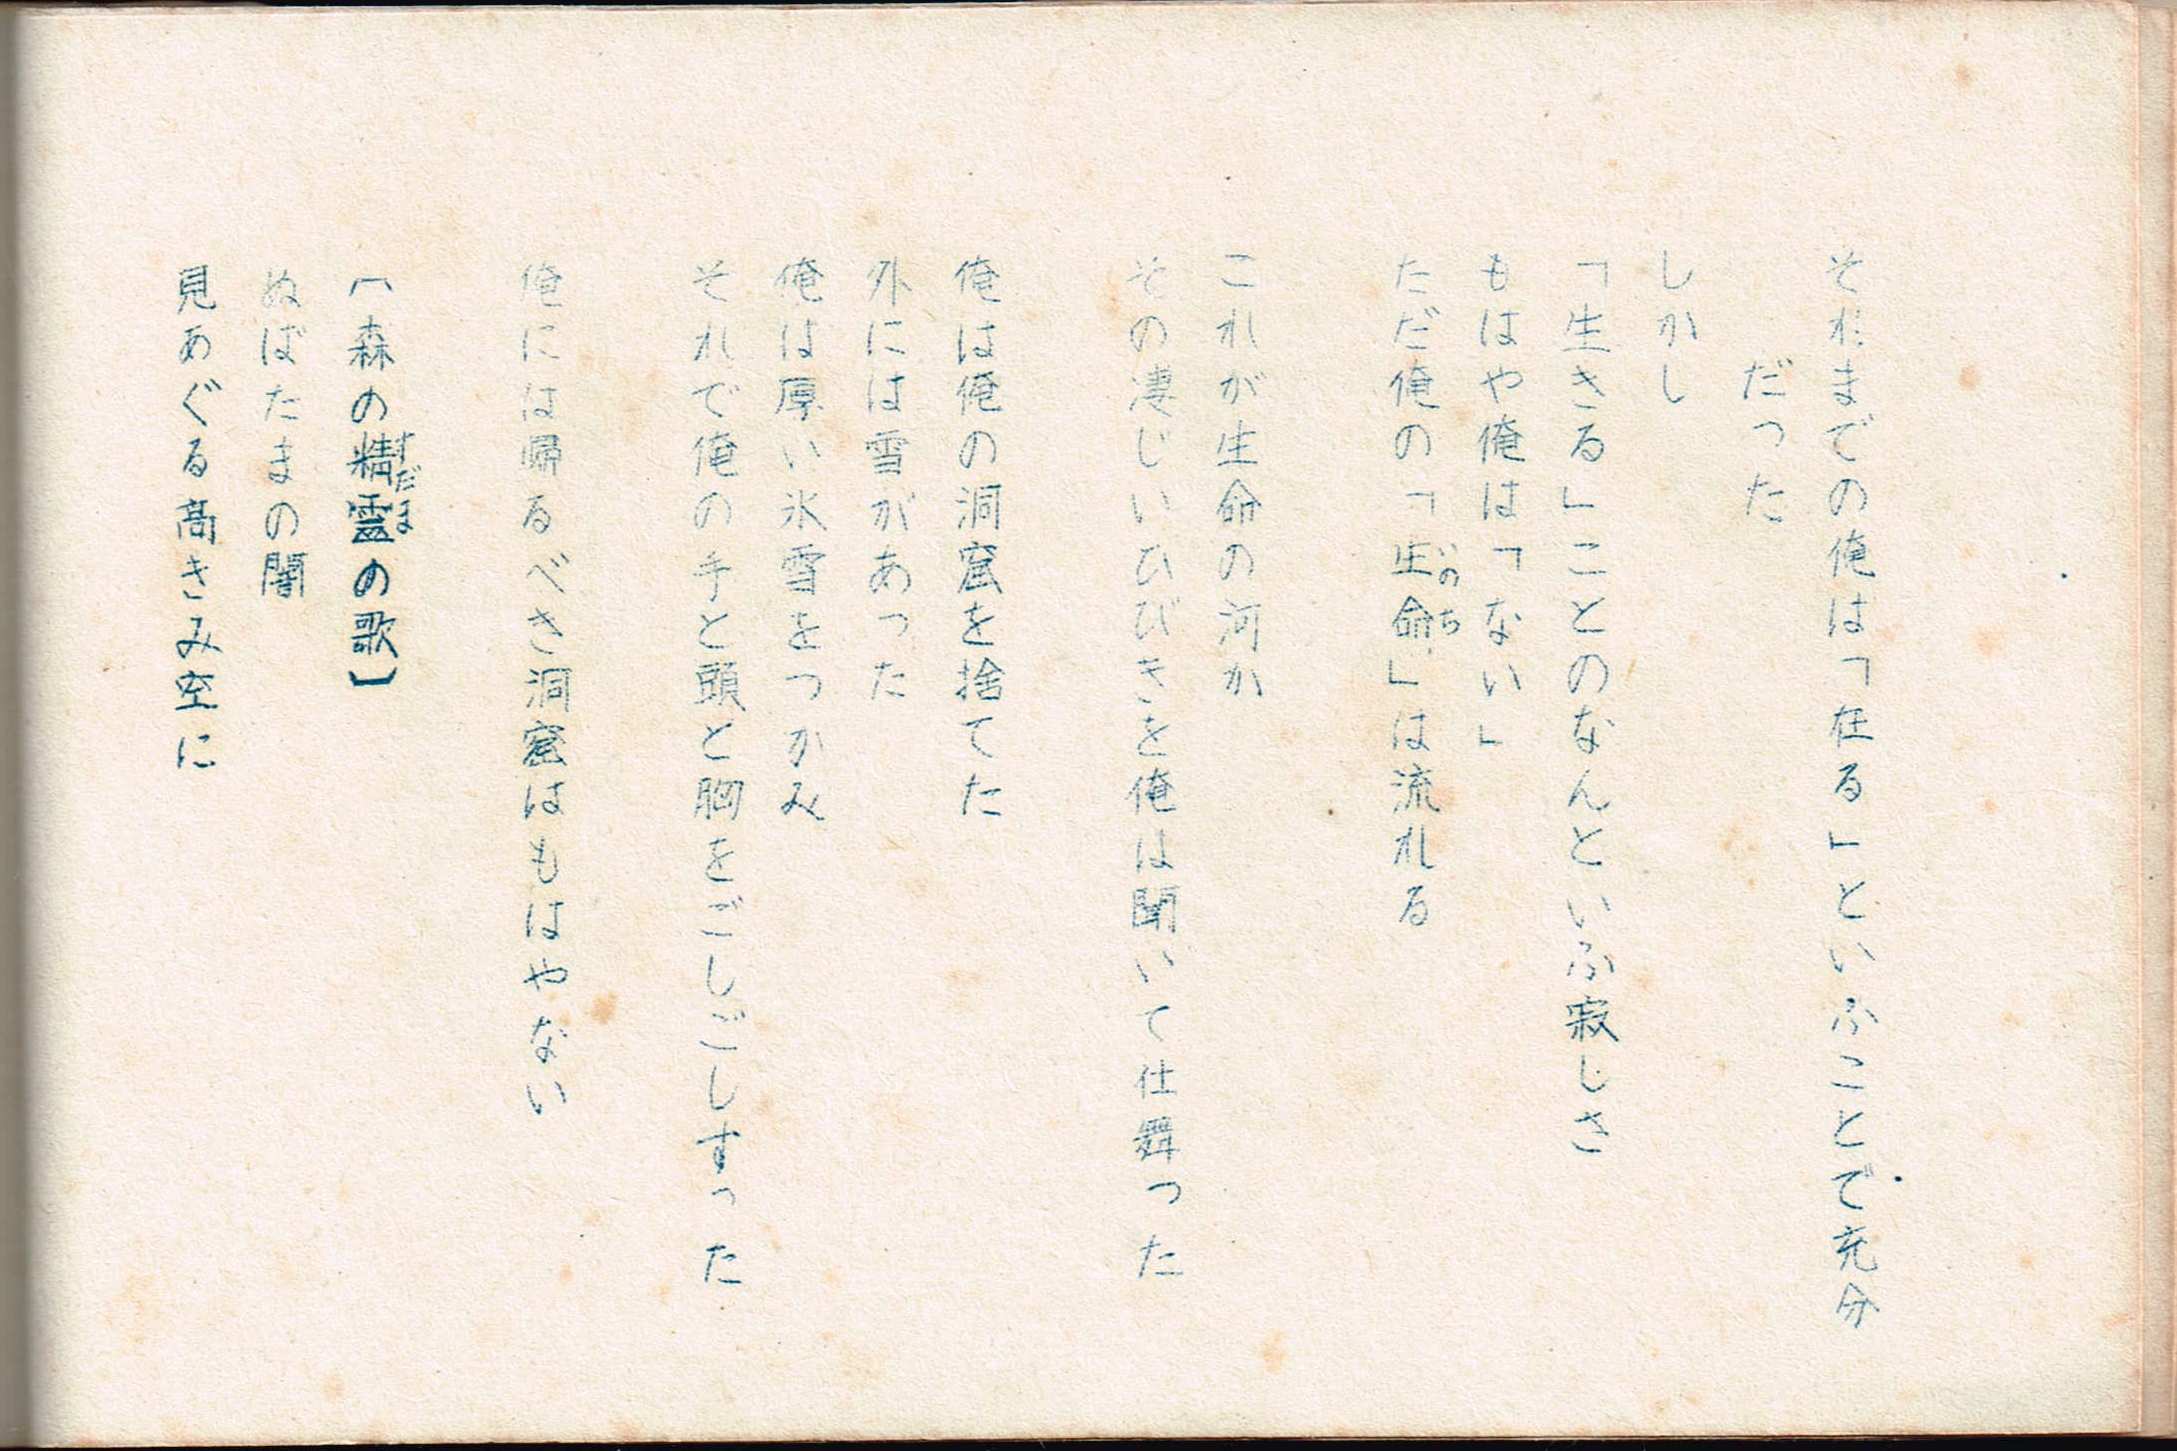 それまでの俺は「在る」といふことで充分
だった
しかし
「生きる」ことのなんといふ寂しさ
もはや俺は「ない」
ただ俺の「生命」は流れる
いのち
これが生命の河か
その凄じいひびきを俺は聞いて仕舞った
俺は俺の洞窟を捨てた
外には雪があった
俺は厚い氷雪をつかみ
それで俺の手と頭と胸をごしごしすった
俺には帰るべき洞窟はもはやない
〔森の精霊の歌〕
すだま
ぬばたまの闇
見あぐる高きみ空に